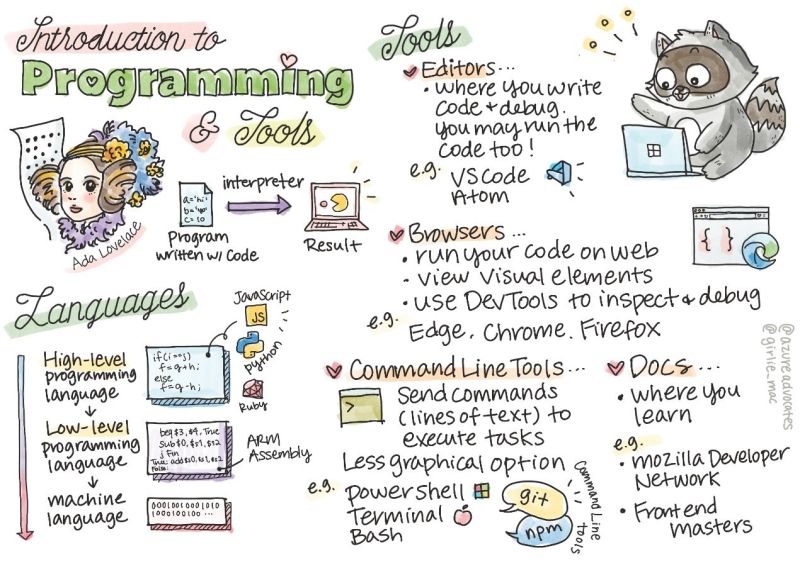 Introduction to
Programming
& Tools
Ada Lovelace
a='hi'
b='yo'
c= 10
Program
written w/ Code
interpreter
Result
Languages
High-level
programming
language
if(i==j)
f=g+h;
else
f=g-h;
JavaScript
JS
python
Ruby
Low-level
programming
language
beq $3, $4, True
Sub $0, $s1, $s2
j Fin
True: add $s0, $s1, $s2
ARM
Assembly
machine
language
0001001001010
1000100100 ...
Tools
Editors...
• where you write
code + debug.
you may run the
code too!
e.g.
VS code
Atom
Browsers ...
• run your code on web
• view visual elements
• use DevTools to inspect + debug
e.g.
Edge, Chrome, Firefox
{ }
Command Line Tools...
>
Send commands
(lines of text) to
execute tasks
Less graphical option
e.g.
powershell
Terminal
Bash
git
npm
Command Line
tools
Docs...
• where you
learn
e.g.
• mozilla Developer
Network
• Frontend
masters
@azureadvocates
@girlie_mac